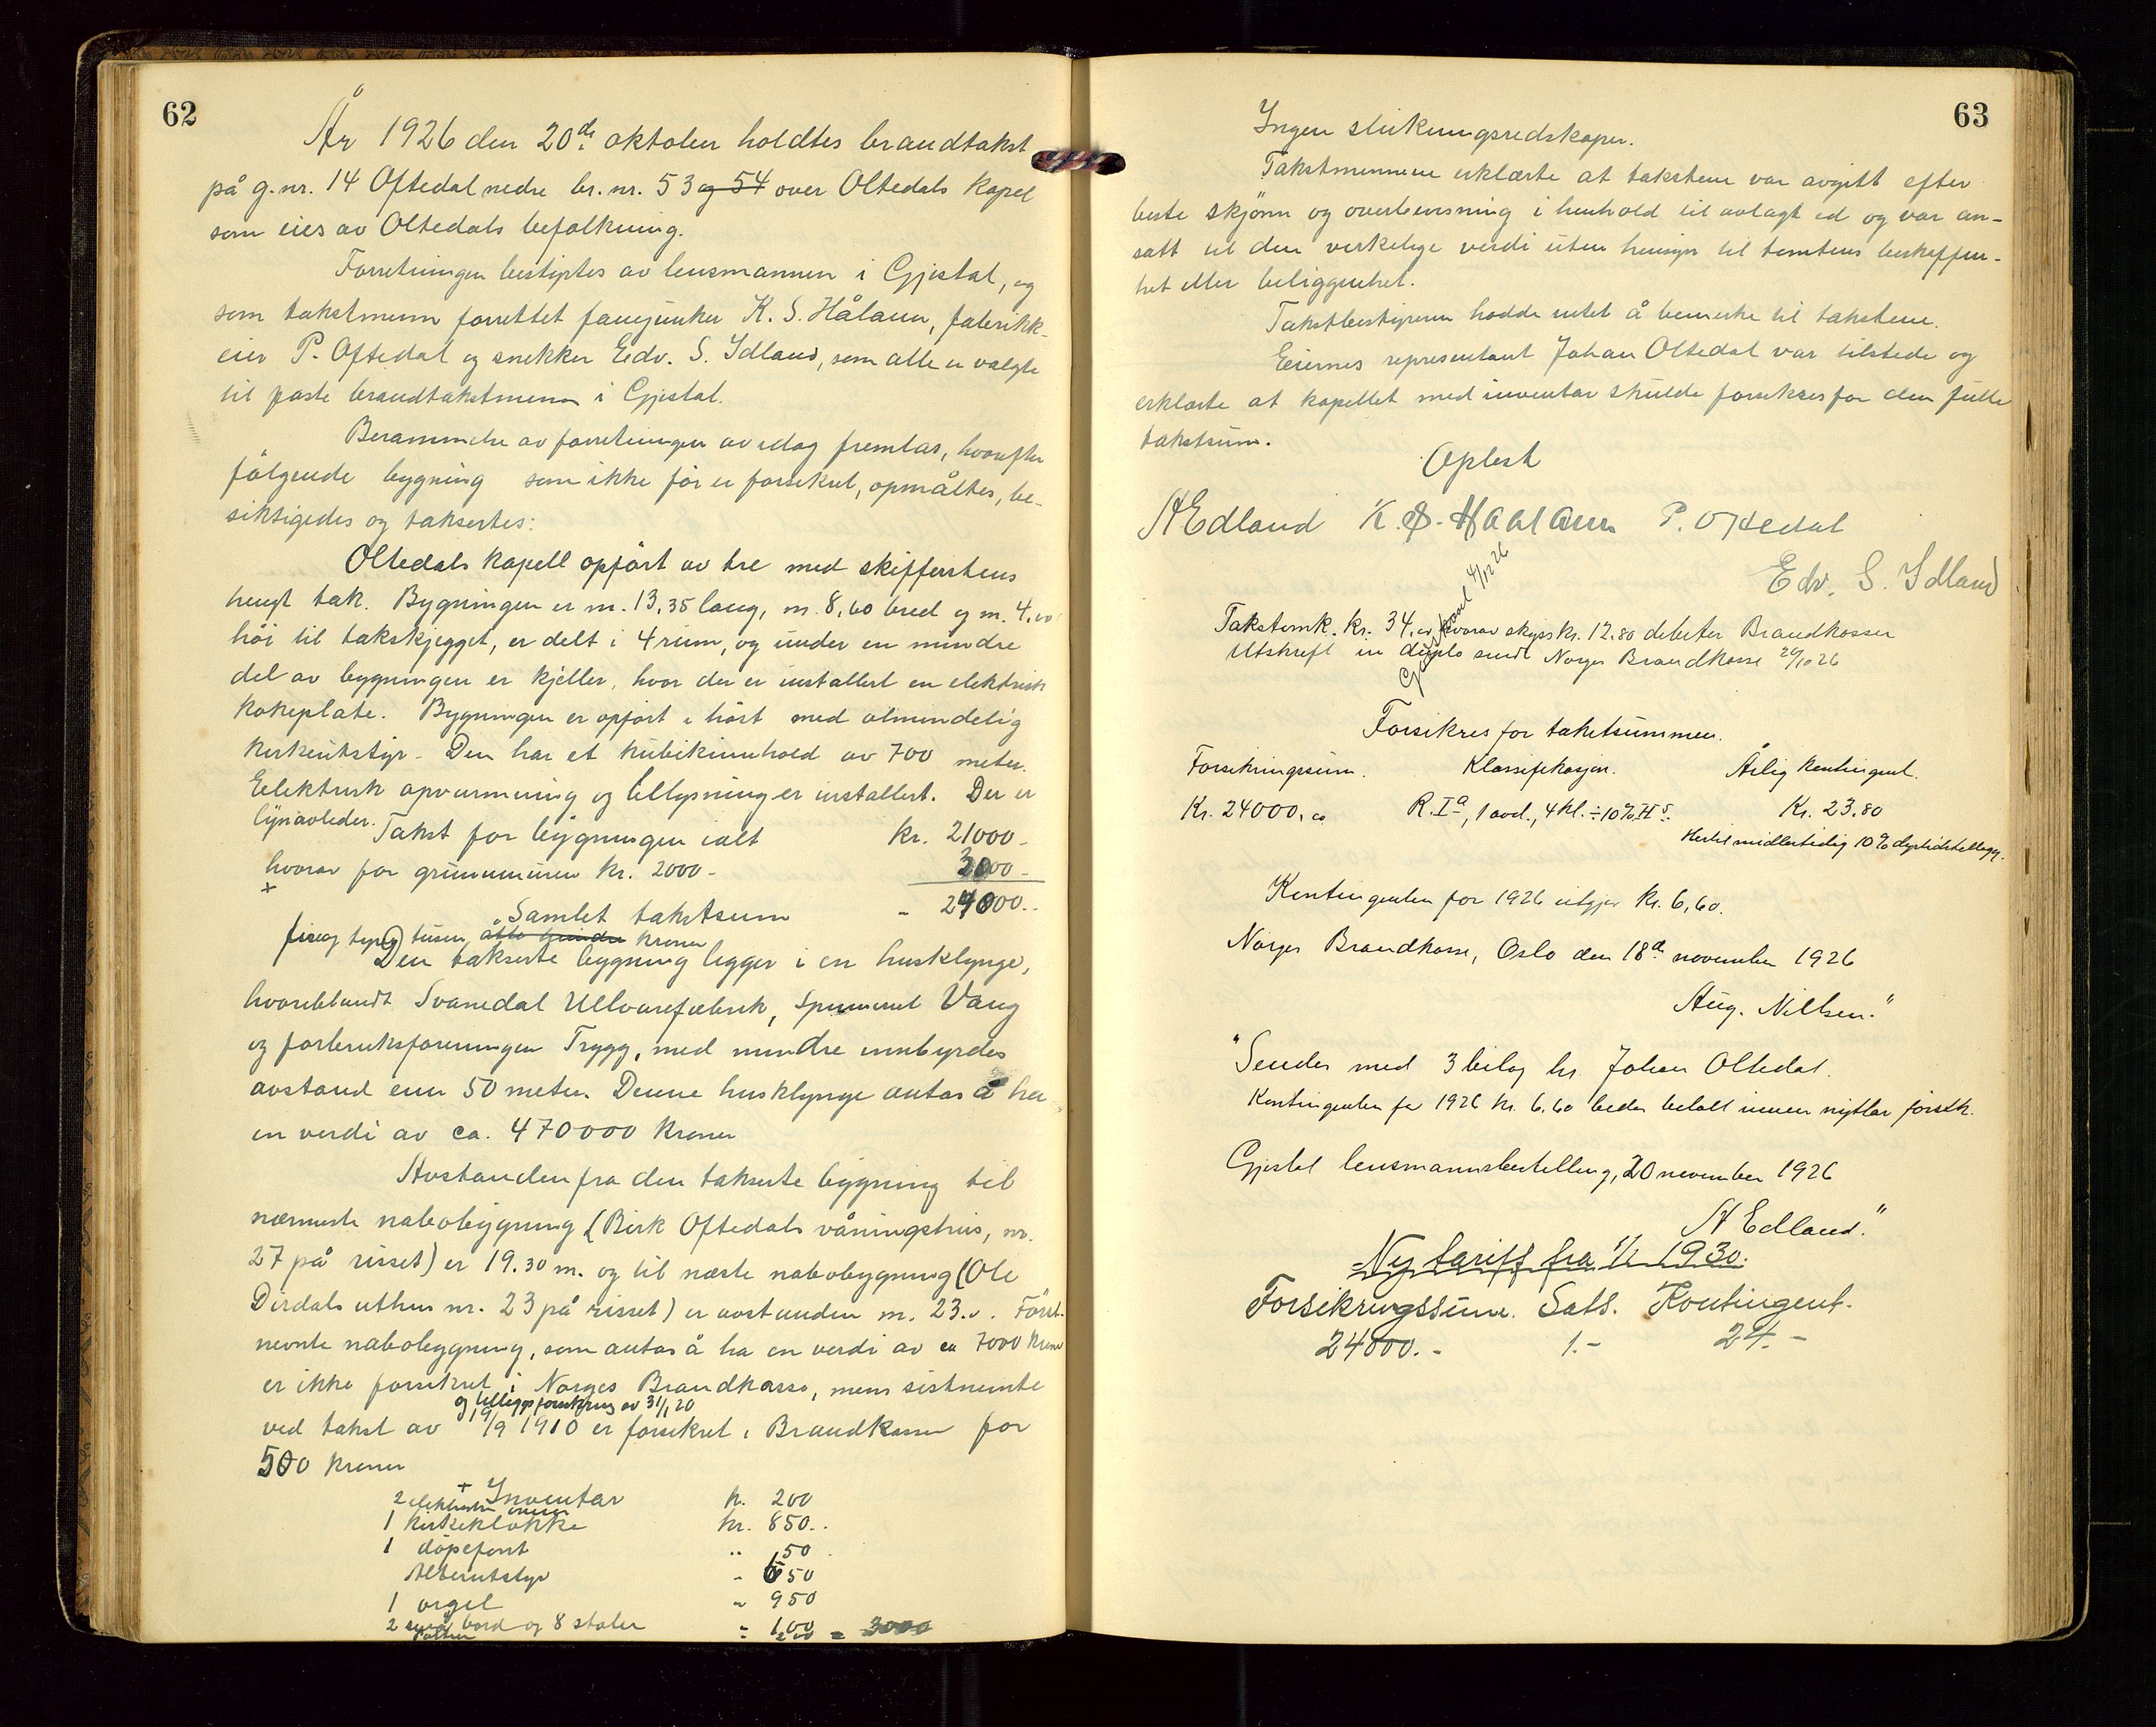 62
År 1926 den 20de oktober holdtes brandtakst
på g.nr. 14 Oftedal nedre br. nr. 53 og 54 over Oltedals Kapel
som eies av Oltedals befolkning.
Forretningen bestyrtes av lensmannen i Gjestal, og
som takstmenn forrettet fanejunker K. S. Håland, fabrikk-
eier P. Oftedal og snekker Edv. S. Idland, som alle er valgte
til faste brandtakstmenn i Gjestal.
Berammelse av forretningen av idag fremlas, hvorefter
følgende bygning som ikke før er forsikret, opmåltes, be-
siktigedes og taksertes:
Oltedals Kapell opført av tre med skifferstens
hengt tak. Bygningen er m. 13,35 lang, m. 8,60 bred og m. 4,00
høi til takskjegget, er delt i 4 rum, og under en mindre
del av bygningen er kjeller, hvor der er installert en elektrisk
kokeplate. Bygningen er opført i høst med almindelig
kirkeutstyr. Den har et kubikinnehold av 700 meter.
Elektrisk opvarmning og bellysning er installert. Der er
lynavleder.
Takst for bygningen ialt kr. 21000-
hvorav for grunnmuren kr. 2000- 3000-
+
Samlet takstsum - 24000..
fireog tyve tusen, åtte hundre kroner
Den takserte bygning ligger i en husklynge,
hvoriblandt Svanedal Ullvarefabrik, Spinneriet Vaug
og forbruksforeningen Trygg, med mindre innbyrdes
avstand enn 50 meter. Denne husklynge antas å ha
en verdi av ca. 470000 kroner
Avstanden fra den takserte bygning til
nærmeste nabobygning (Birk Oftedals våningshus, nr.
27 på risset) er 19.30 m. og til næste nabobygning (Ole
Dirdals uthus nr. 23 på risset) er avstanden m. 23.0. Først-
nevnte nabobygning, som antas å ha en verdi av ca 7000 kroner
er ikke forsikret i Norges Brandkasse, mens sistnevnte
og tilleggsforsikring av 31/1 20
ved takst av 19/9 1910 er forsikret i Brandkassen for
500 kroner
+ Inventar
2 elektriske ovner k. 200
1 kirkeklokke kr. 850..
1 døpefont .. 50
Alterutstyr - 650
1 orgel " 950
2 små bord og 8 stoler = 100
200 = 3000
63
Ingen slukningsredskaper.
Takstmennene erklærte at takstene var avgitt efter
beste skjønn og overbevisning i henhold til avlagt ed og var an-
satt til den verkelige verdi uten hensyn til tomtens beskaffen-
het eller beliggenhet.
Takstbestyreren hadde intet å bemerke til takstene.
Eiernes representant Johan Oltedal var tilstede og
erklærte at kapellet med inventar skulde forsikres for den fulle
takstsum.
Oplest
A Edland K. S. Haaland P. Oftedal
Edv. S. Idland
Takstomk. kr. 34,00 hvorav skyss kr. 12.80 debiter Brandkassen
Utskrift in duplo sendt Norges Brandkasse 26/10 26
4/12 26
Forsikres for takstsummen.
Forsikringssum. Klassifikasjon. Årlig kontingent.
Kr. 24000,00 R. Ia, 1 avd., 4 kl. ÷ 10% H s. Kr. 23.80
Hertil midlertidig 10% dyrtidstillegg.
Kontingenten for 1926 utgjør kr. 6,60.
Norges Brandkasse, Oslo den 18de november 1926
Aug. Nilsen."
"Sendes med 3 bilag hr. Johan Oltedal.
Kontingenten for 1926 kr. 6,60 bedes betalt innen nyttår førstk.
Gjestal lensmannsbestilling, 20 november 1926
A Edland."
Ny tariff fra 1/1 1930.
Forsikringssum. Sats. Kontingent.
24000.- 1.- 24.-